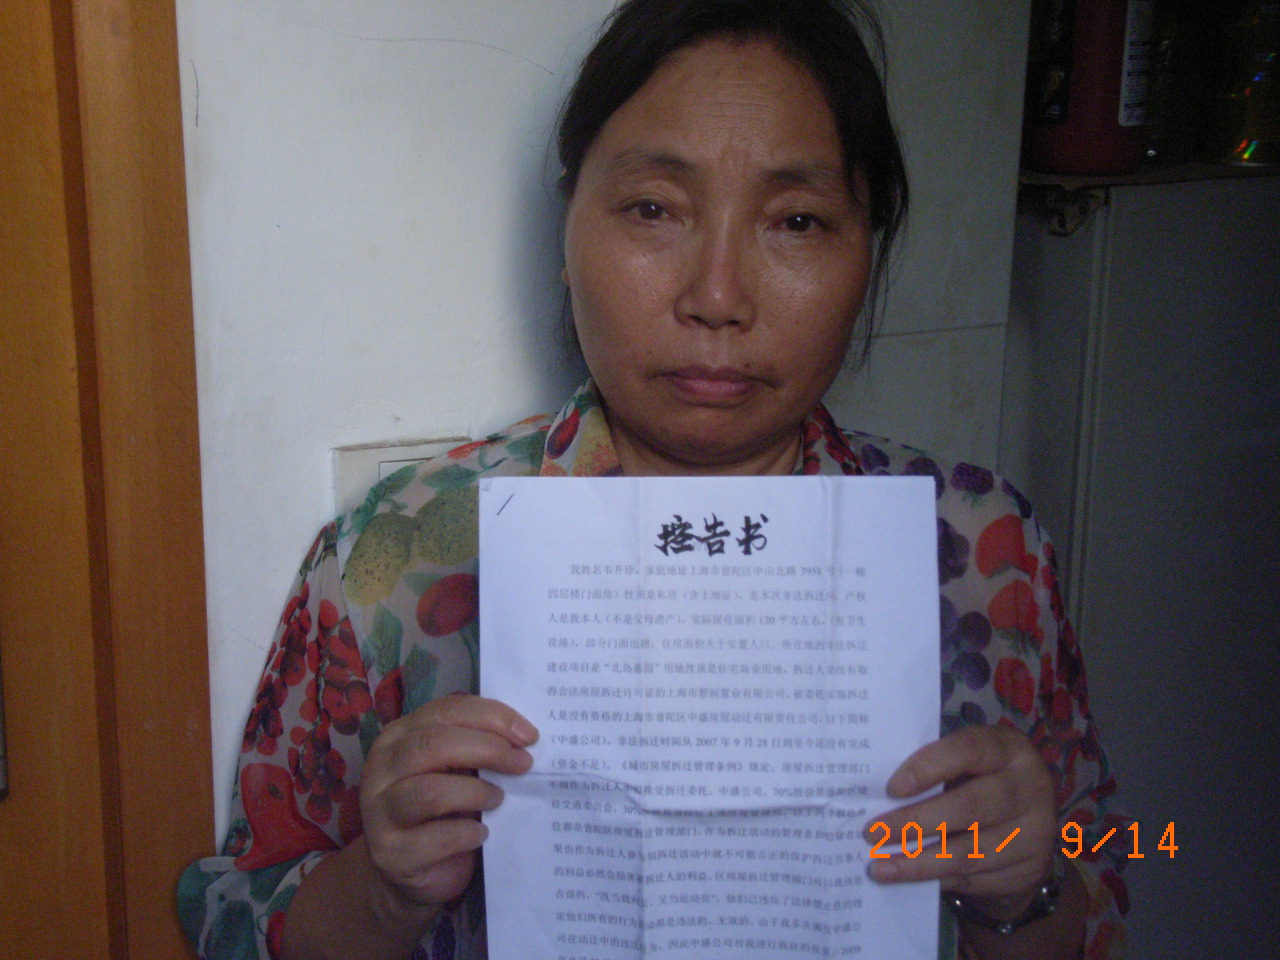 控告书
我姓名韦开珍，家庭地址上海市普陀区中山北路 3958 号（一幢
四层楼门面房）性质是私房（含土地证），是本次非法拆迁户，产权
人是我本人（不是父母遗产），实际居住面积 120 平方左右，（有卫生
设施），部分门面出租，住房面积大于安置人口，所在地的非法拆迁
建设项目是“北岛嘉园”用地性质是住宅商业用地，拆迁人是没有取
得合法房屋拆迁许可证的上海市碧润置业有限公司，被委托实施拆迁
人是没有资格的上海市普陀区中盛房屋动迁有限责任公司，以下简称
（中盛公司），非法拆迁时间从 2007 年 9 月 28 日到至今还没有完成
（资金不足），《城市房屋拆迁管理条例》规定：房屋拆迁管理部门
不得作为拆迁人不得接受拆迁委托，中盛公司，70%股份是普陀区建
设交通委员会，30%
位都是普陀区房屋拆迁管理部门，作为拆迁活动的管理者和监督者
果也作为拆迁人参与到拆迁活动中就不可能公正的保护拆迁当事人
的利益必然会损害被拆迁人的利益，区房屋拆迁管理部门
“既当裁判员，又当运动员”；他们已违反了法律
定他们所有的行为活动都是违法的，无效的，由于我多次揭发中盛公
司在动迁中的违法行为，因此中盛公司对我进行疯狂的报复，2009
2011/ 9/14